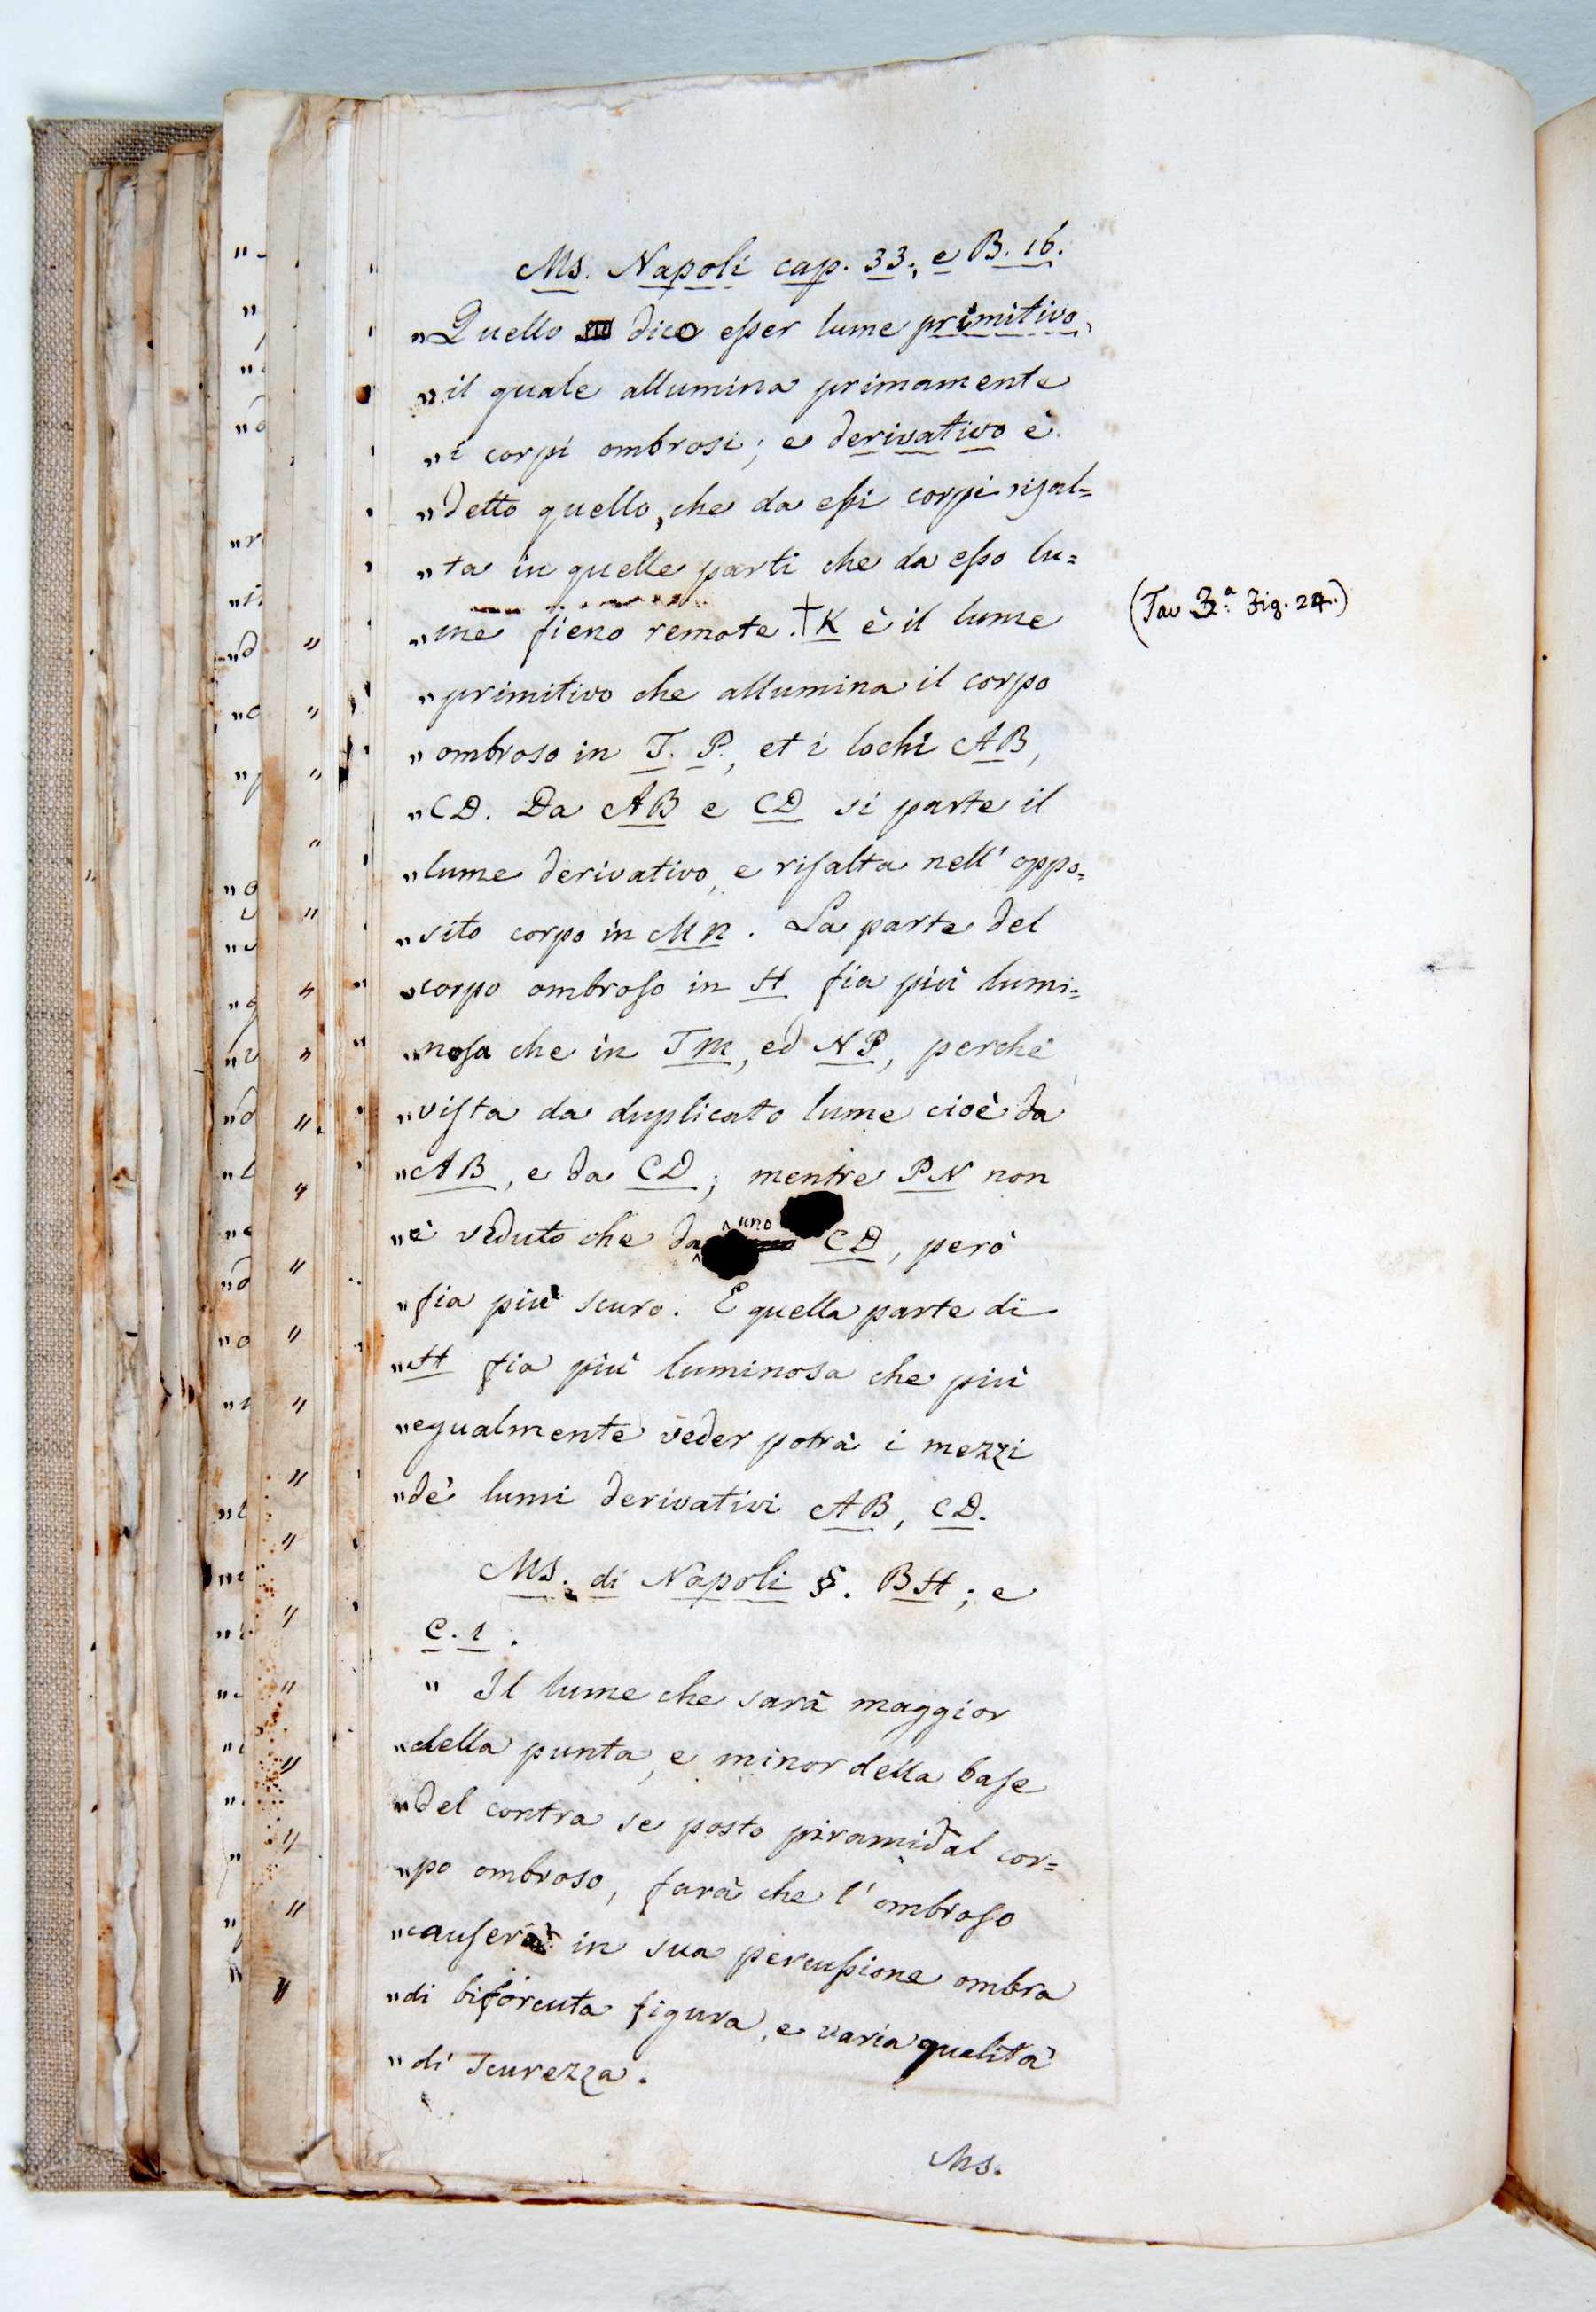 Ms. Napoli cap. 33., e B. 16.
„Quello dico eſser lume primitivo,
„il quale allumina primamente
„i corpi ombrosi; e derivativo è
„detto quello, che da eſsi corpi riſal=
„ta in quelle parti che da eſso lu=
„me fieno remote. †K è il lume
(Tav 3.ª Fig. 24.)
„primitivo che allumina il corpo
„ombroso in T. P., et i lochi AB,
„CD. Da AB e CD si parte il
„lume derivativo, e riſalta nell' oppo=
„sito corpo in Mn. La parte del
„corpo ombroſo in H fia più lumi=
„noſa che in Tm, ed NP, perchè
„viſta da duplicato lume cioè da
„AB, e da CD; mentre PN non
„è veduto che da uno CD, però
„fia più scuro. E quella parte di
„H fia più luminosa che più
„egualmente veder potrà i mezzi
„de' lumi derivativi AB, CD.
Ms. di Napoli §. BH; e
C. 1.
„ Il lume che sarà maggior
„della punta, e minor della baſe
„del contra se posto piramidal cor=
„po ombroso, farà che l'ombroſo
„cauſerà in sua percuſsione ombra
„di biforcuta figura, e varia qualità
„di scurezza.
Ms.